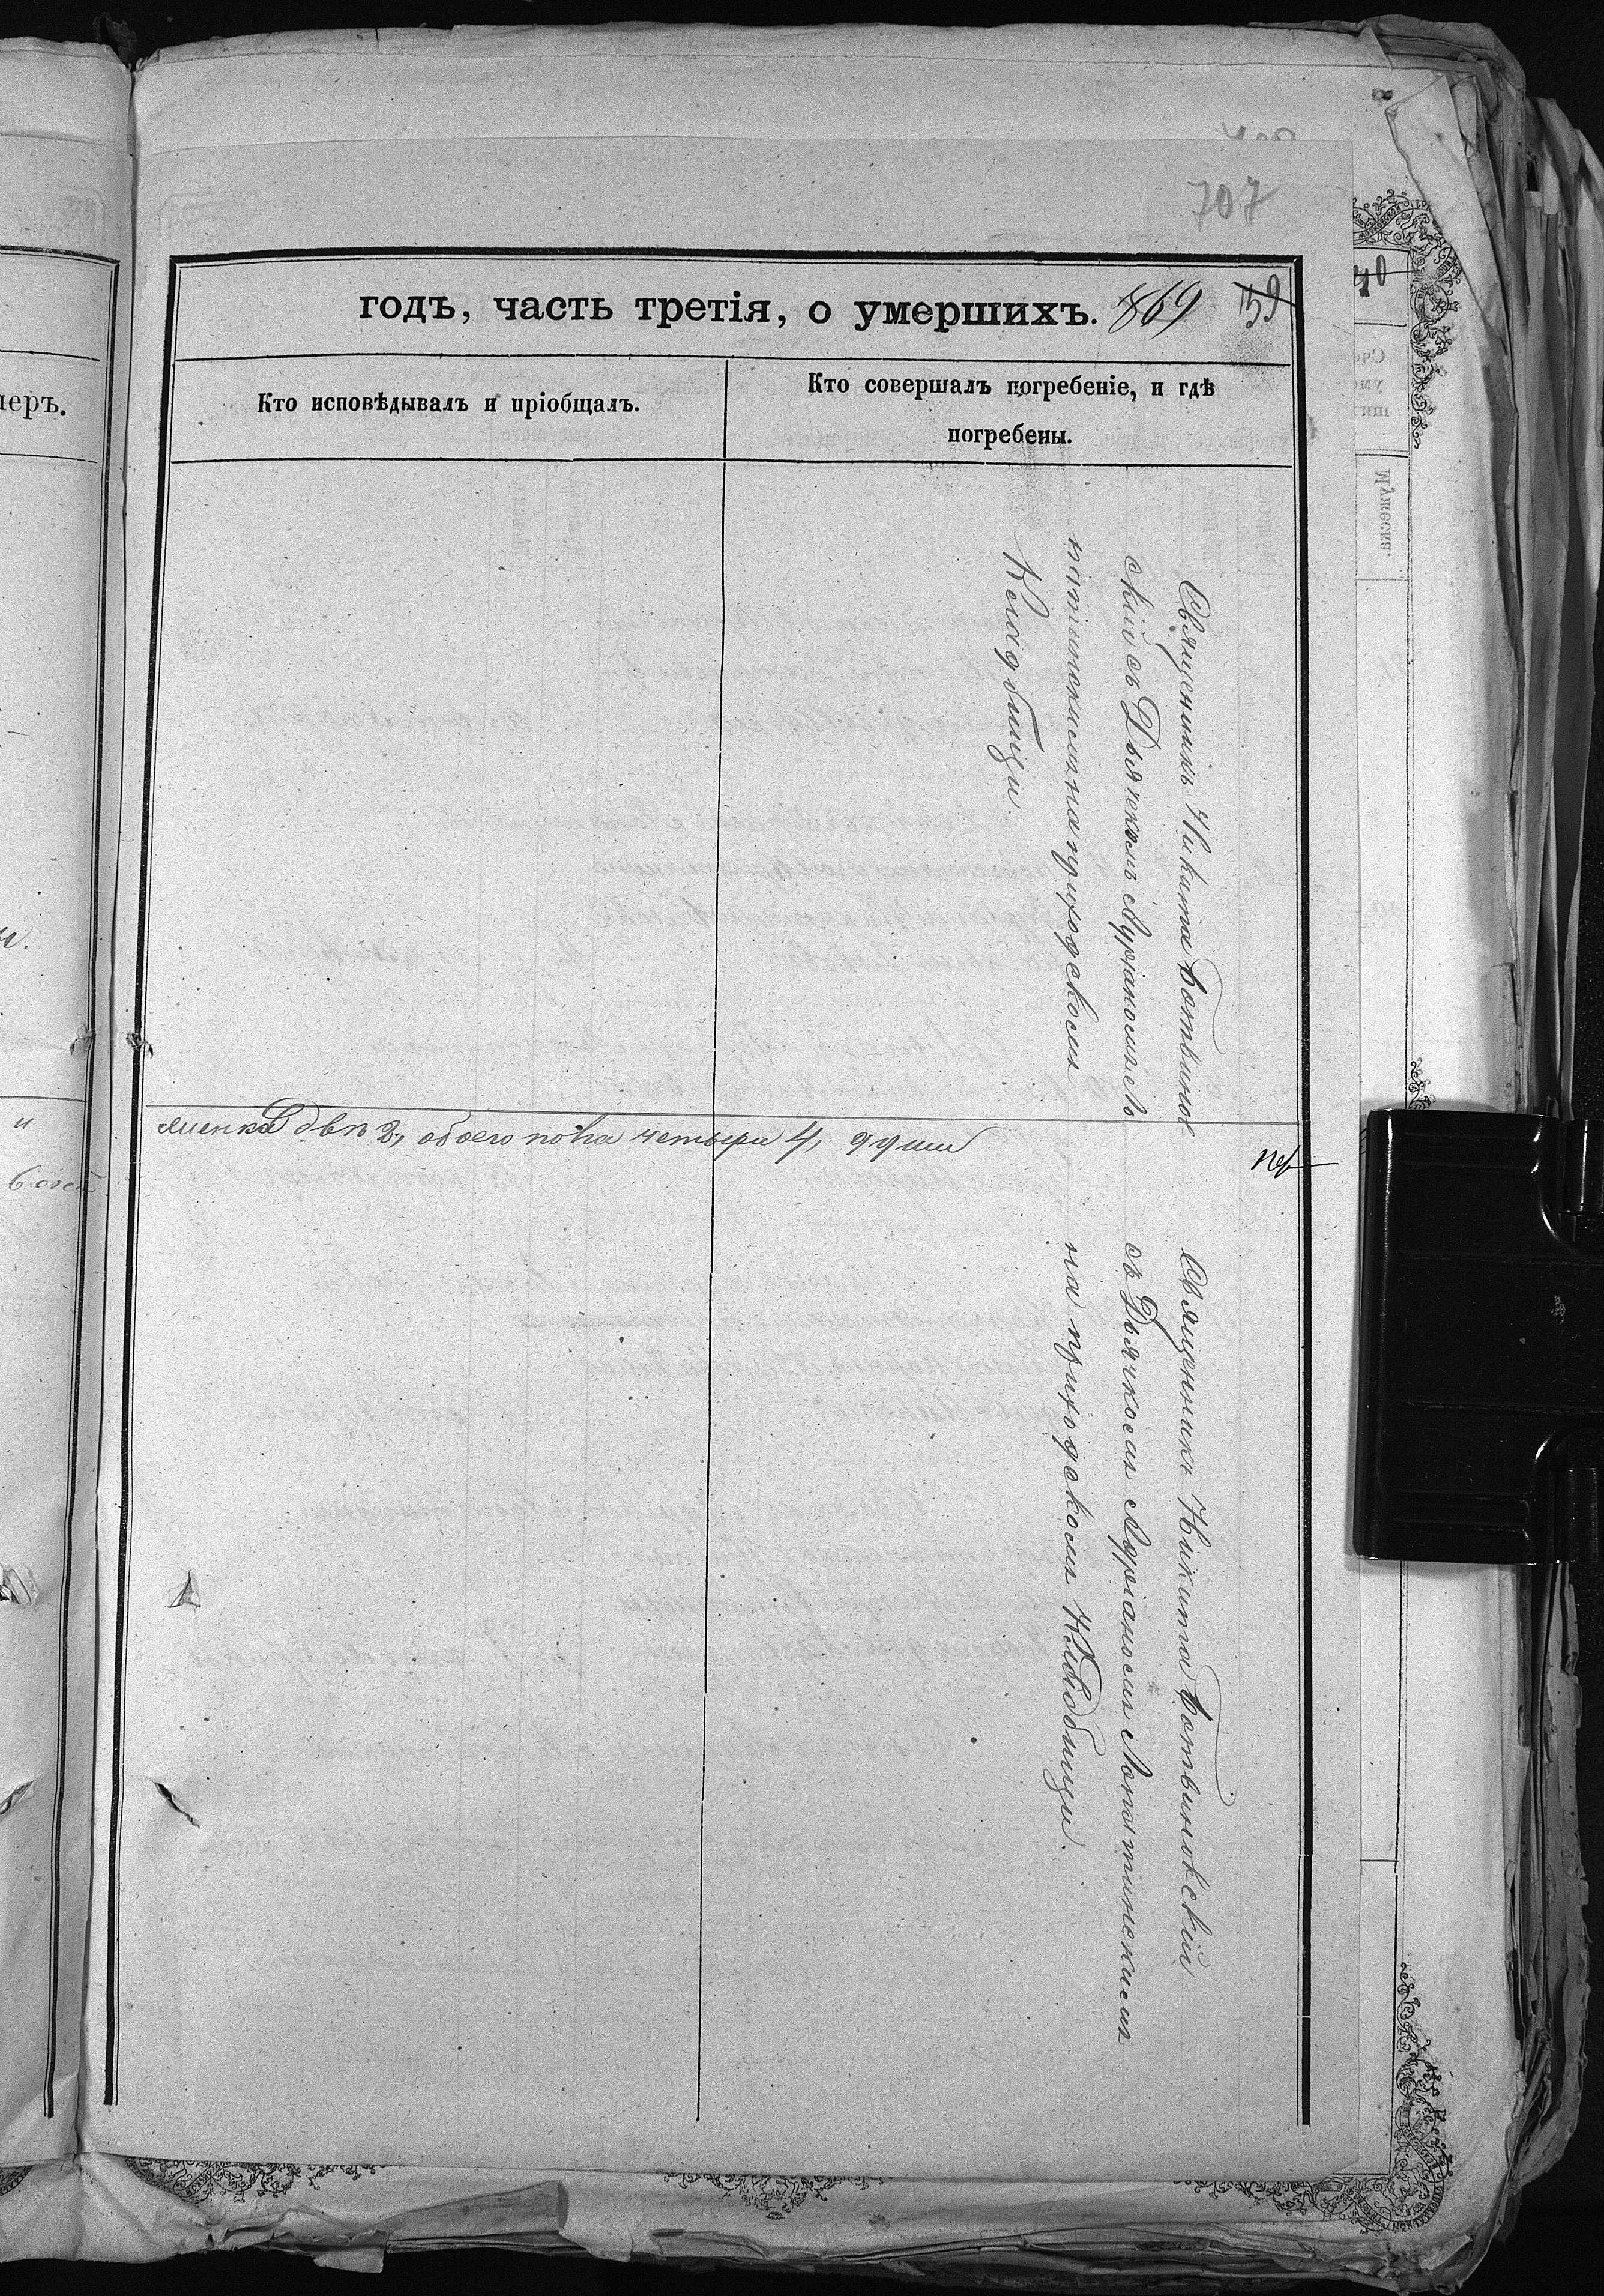 707
годъ, часть третія, о умершихъ. 1869 59
Кто исповѣдывалъ и пріобщалъ.
Кто совершалъ погребеніе, и гдѣ
погребены.
Священникъ Никита Ботвинов
скій съ Дьячкомъ Адріаномъ Ло
патинскимъ на приходскомъ
Кладбищи
женска двѣ 2, обоего пола четыри 4, души
Священникъ Никита Ботвиновскій
съ Дьячкомъ Адріаномъ Лопатинскимъ
на приходскомъ Кладбищи.
меръ.
40